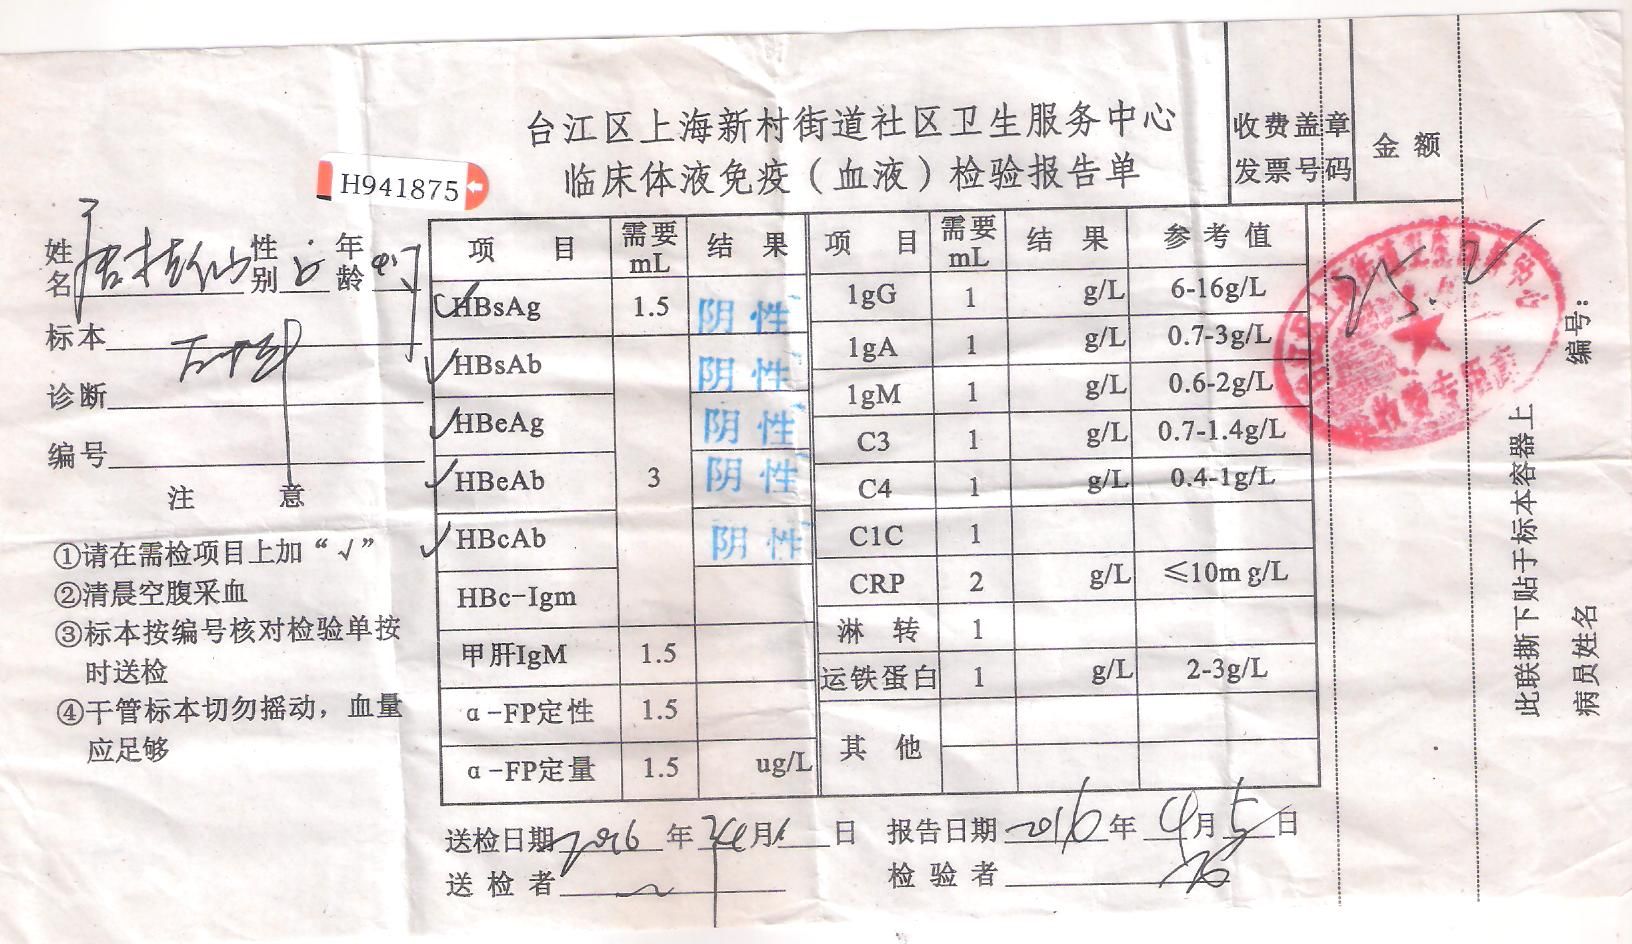 台江区上海新村街道社区卫生服务中心
临床体液免疫(血液)检验报告单
收费盖章 金额
发票号码
25.2
H941875
姓名 性别 年龄
标本
诊断
编号
注 意
①请在需检项目上加“√”
②清晨空腹采血
③标本按编号核对检验单按
时送检
④干管标本切勿摇动，血量
应足够
项 目 需要mL 结 果
√HBsAg 1.5 阴性
√HBsAb 阴性
√HBeAg 阴性
√HBeAb 3 阴性
√HBcAb 阴性
HBc-Igm
甲肝IgM 1.5
α-FP定性 1.5
α-FP定量 1.5 ug/L
项 目 需要mL 结 果 参考值
1gG 1 g/L 6-16g/L
1gA 1 g/L 0.7-3g/L
1gM 1 g/L 0.6-2g/L
C3 1 g/L 0.7-1.4g/L
C4 1 g/L 0.4-1g/L
C1C 1
CRP 2 g/L ≤10m g/L
淋 转 1
运铁蛋白 1 g/L 2-3g/L
其 他
送检日期 2016 年 月 日 报告日期 2016 年 4 月 5 日
送检者 检验者
此联撕下贴于标本容器上
病员姓名 编号:
收费专用章